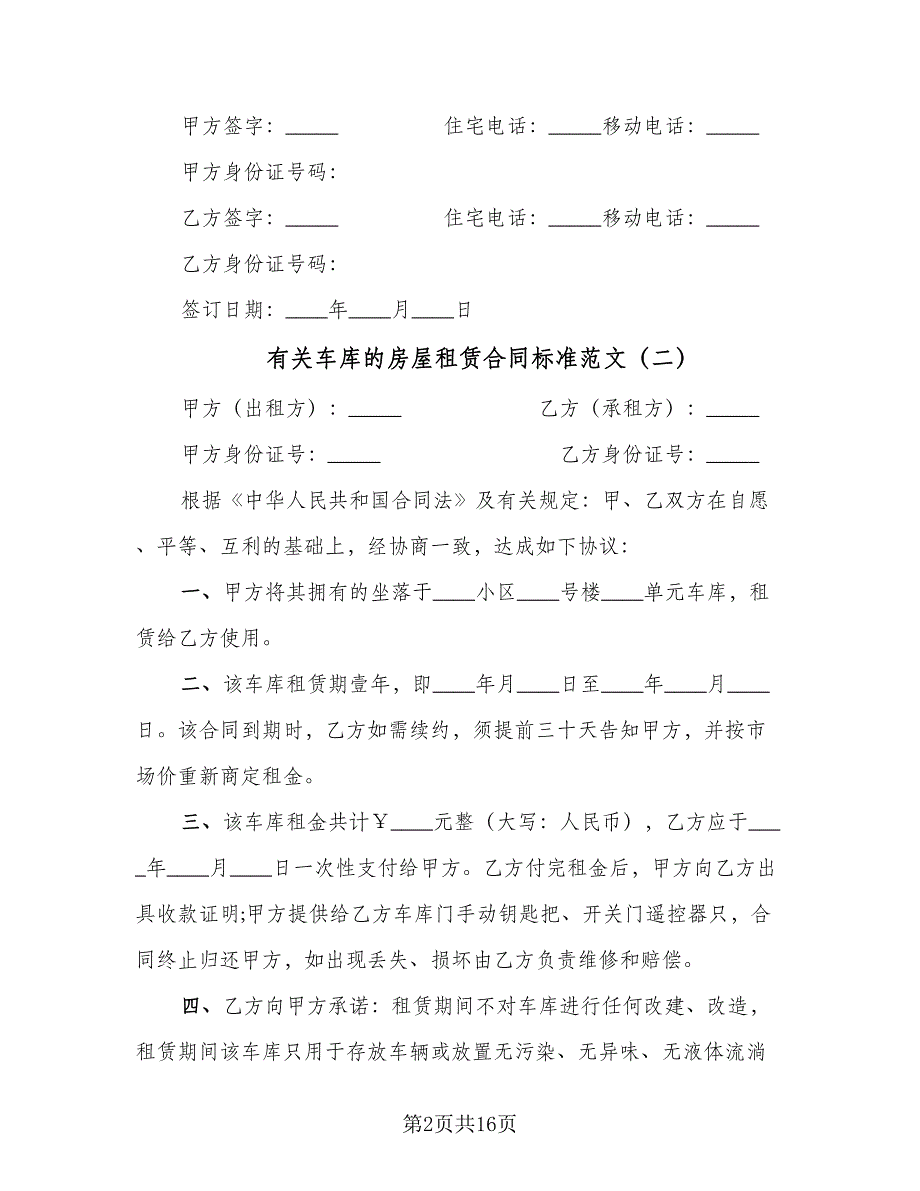 甲方签字：_____ 住宅电话：_____移动电话：_____
甲方身份证号码：
乙方签字：_____ 住宅电话：_____移动电话：_____
乙方身份证号码：
签订日期：____年____月____日
有关车库的房屋租赁合同标准范文（二）
甲方（出租方）：_____ 乙方（承租方）：_____
甲方身份证号：_____ 乙方身份证号：_____
根据《中华人民共和国合同法》及有关规定：甲、乙双方在自愿
、平等、互利的基础上，经协商一致，达成如下协议：
一、甲方将其拥有的坐落于____小区____号楼____单元车库，租
赁给乙方使用。
二、该车库租赁期壹年，即____年月____日至____年____月____
日。该合同到期时，乙方如需续约，须提前三十天告知甲方，并按市
场价重新商定租金。
三、该车库租金共计￥____元整（大写：人民币），乙方应于___
_年____月____日一次性支付给甲方。乙方付完租金后，甲方向乙方出
具收款证明;甲方提供给乙方车库门手动钥匙把、开关门遥控器只，合
同终止归还甲方，如出现丢失、损坏由乙方负责维修和赔偿。
四、乙方向甲方承诺：租赁期间不对车库进行任何改建、改造，
租赁期间该车库只用于存放车辆或放置无污染、无异味、无液体流淌
第2页共16页